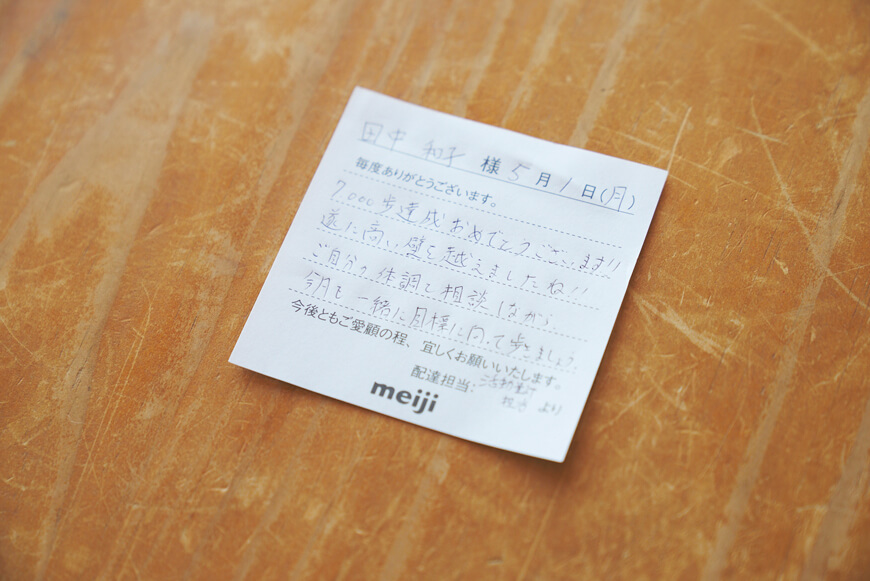 田中 和子 様 5月1日(月)
毎度ありがとうございます。
7000歩達成おめでとうございます!!
遂に高い壁を越えましたね!!
ご自分の体調と相談しながら、
今月も一緒に目標に向って歩きましょう
今後ともご愛顧の程、宜しくお願いいたします。
配達担当: 活動量計
担当 より
meiji